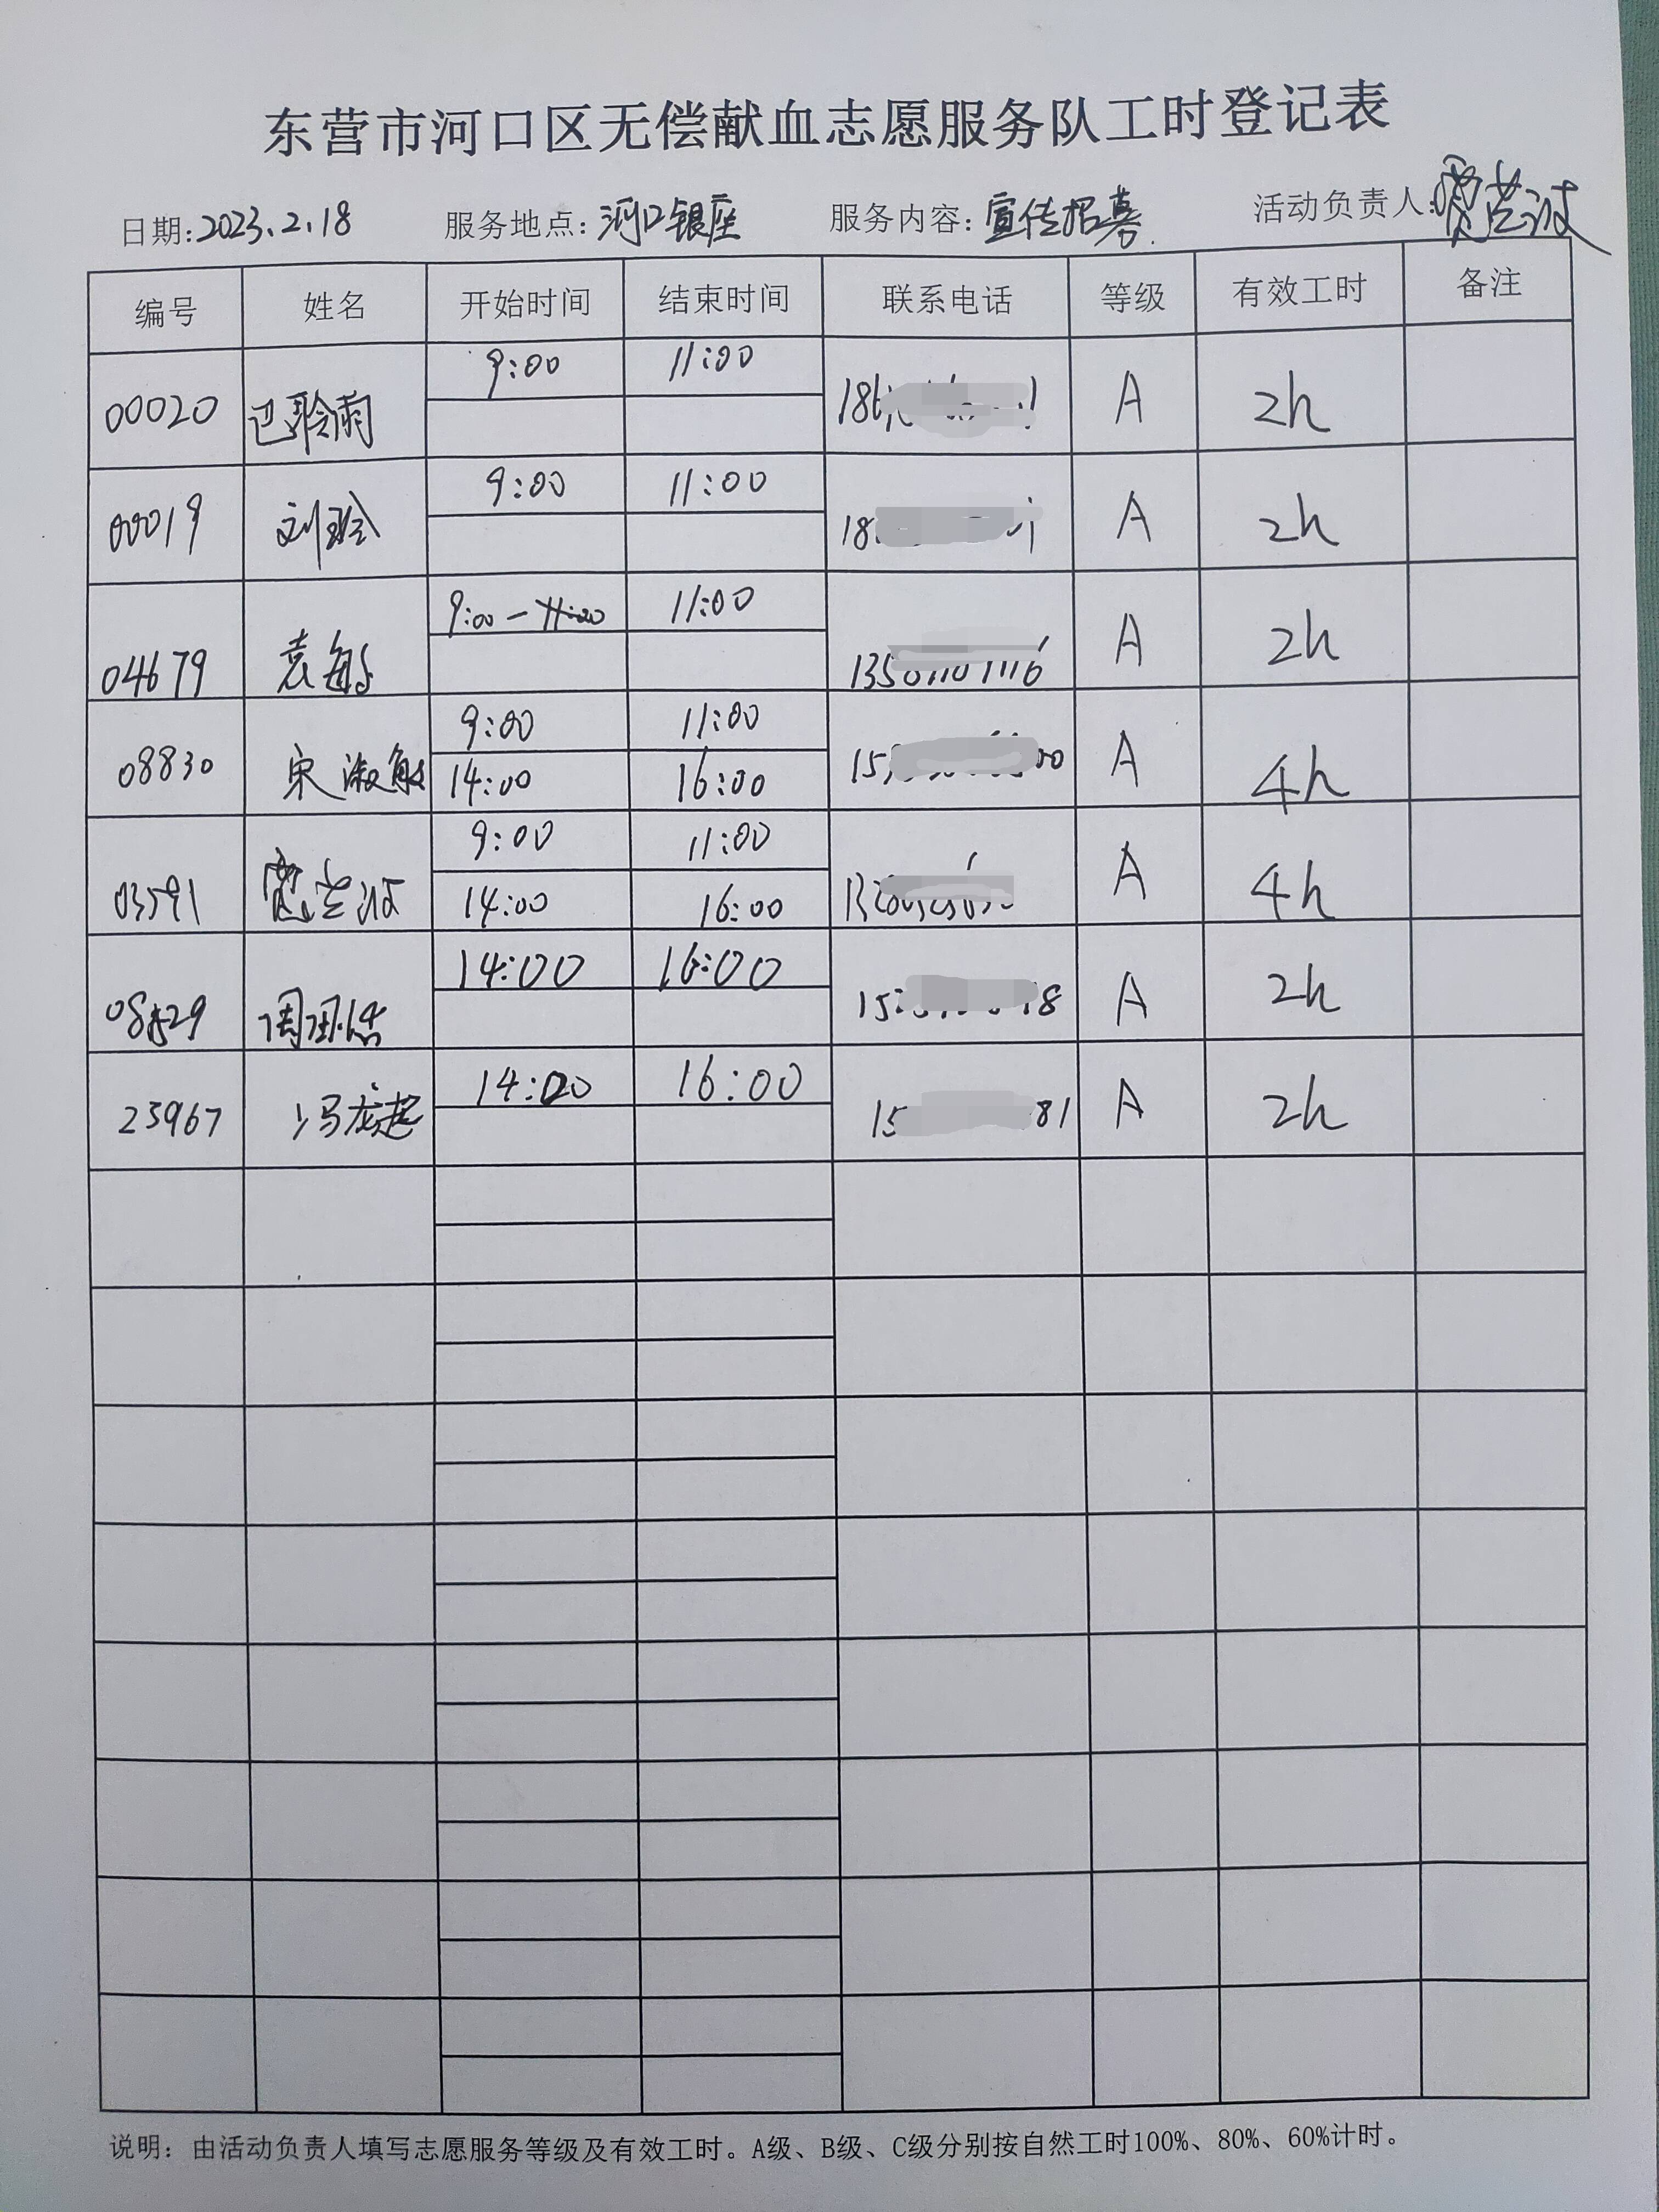 东营市河口区无偿献血志愿服务队工时登记表
日期:2023.2.18 服务地点:河口银座 服务内容:宣传招募 活动负责人:
编号 姓名 开始时间 结束时间 联系电话 等级 有效工时 备注
9:00 11:00
00020 巴聆雨 A 2h
9:00 11:00
00019 刘玲 A 2h
9:00-11:00 11:00
04679 袁敏 A 2h
9:00 11:00
08830 宋淑敏 A 4h
14:00 16:00
9:00 11:00
03591 A 4h
14:00 16:00
14:00 16:00
周 A 2h
14:00 16:00
23967 冯龙起 A 2h
说明: 由活动负责人填写志愿服务等级及有效工时。A级、B级、C级分别按自然工时100%、80%、60%计时。